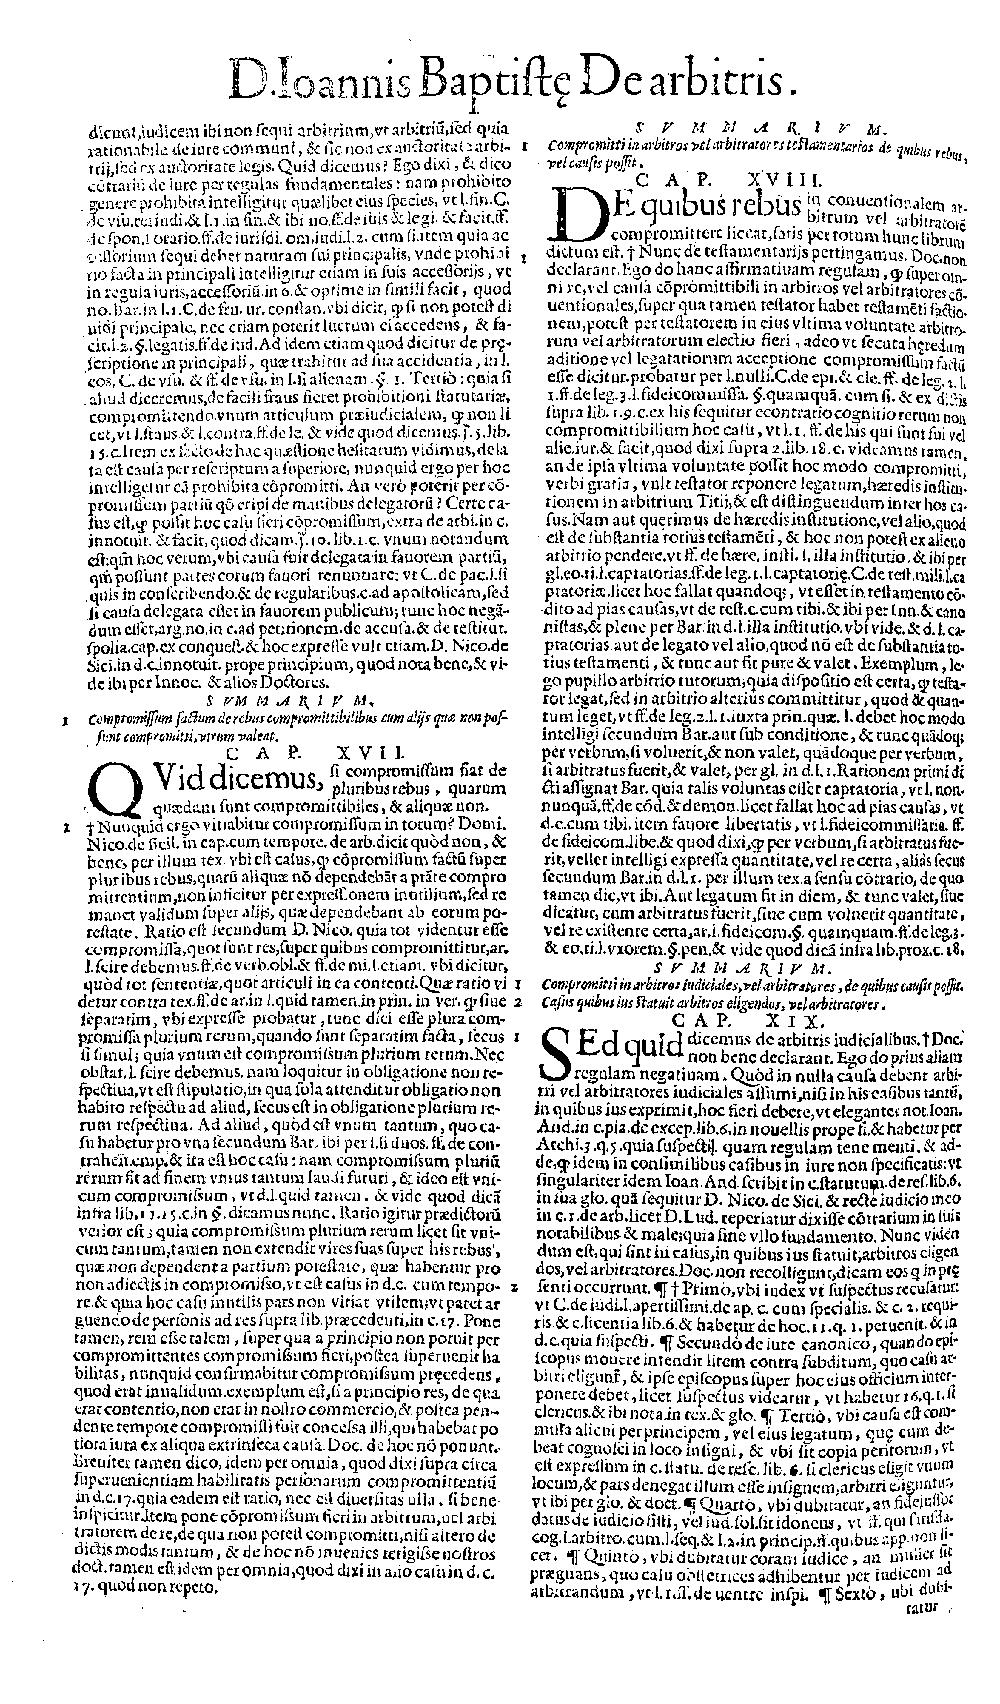 D. Ioannis Baptistę De arbitris.
dicunt, iudicem ibi non sequi arbitrium, vt arbitriũ, sed quia
rationabile de iure communi, & sic non ex auctoritate arbi-
trij, sed ex auctoritate legis. Quid dicemus? Ego dixi, & dico
cõtrariũ de iure per regulas fundamentales: nam prohibito
genere prohibita intelligitur quælibet eius species, vt l. fin. C.
de viu. rei iudi. & l. 1. in fin. & ibi no. ff. de iuis & legi. & facit. ff.
de spon. l oratio. ff. de iurisdi. om. iudi. l. 2. cum si. item quia ac
cessorium sequi debet naturam sui principalis, vnde prohibi
no facta in principali intelligitur etiam in suis accessorijs, vt
in regula iuris, accessoriũ. in 6. & optime in simili facit, quod
no. Bar. in l. 1. C. de fru. ur. constan. vbi dicit, ꝙ si non potest di
uidi principale, nec etiam poterit luctum ei accedens, & fa-
cit. l. 2. §. legatis. ff. de iud. Ad idem etiam quod dicitur de prę-
scriptione in principali, quæ trahitur ad sua accidentia, in l.
eos, C. de vsu. & ff. de vsu. in l. si alienam. §. 1. Tertiò: quia si
aliud diceremus, de facili fraus fieret prohibitioni statutariæ,
compromittendo vnum articulum præiudicialem, ꝙ non li
cet, vt l. fraus. & l. contra. ff. de le. & vide quod dicemus. J. 5. lib.
15. c. Item ex facto de hac quæstione hesitatum vidimus, dela
ta est causa per rescriptum a superiore, nunquid ergo per hoc
intelligetur eã prohibita cõpromitti. An verò poterit per cõ-
promissum partiũ qõ eripi de manibus delegatorũ? Certe ca-
sus est, ꝙ possit hoc casu fieri cõpromissum, extra de arbi. in c.
innotuit. & facit, quod dicam. J. 10. lib. 1. c. vnum notandum
est: qm̃ hoc verum, vbi causa fuit delegata in fauorem partiũ,
qm̃ possunt partes eorum fauori renunciare: vt C. de pac. l. si
quis in conscribendo. & de regularibus. c. ad apostolicam, sed
si causa delegata esset in fauorem publicum; tunc hoc negã-
dum esset, arg. no. in c. ad petitionem. de accusa. & de restitut.
spolia. cap. ex conquest. & hoc expresse vult etiam. D. Nico. de
Sici. in d. c. innotuit. prope principium, quod nota bene, & vi-
de ibi per Innoc. & alios Doctores.
S V M M A R I V M.
1 Compromissum factum de rebus compromittibilibus cum alijs quæ non pos-
sunt compromitti, vtrum valeat.
C A P. XVII.
QVid dicemus, si compromissum fiat de
pluribus rebus, quarum
quædam sunt compromittibiles, & aliquæ non.
1 † Nunquid ergo vitiabitur compromissum in totum? Domi.
Nico. de sicil. in cap. cum tempore. de arb. dicit quòd non, &
bene, per illum tex. vbi est casus, ꝙ cõpromissum factũ super
pluribus rebus, quarũ aliquæ nõ dependebãt a ptãte compro
mittentium, non inficitur per expressionem inutilium, sed re
manet validum super alijs, quæ dependebant ab eorum po-
testate. Ratio est secundum D. Nico. quia tot videntur esse
compromissa, quot sunt res, super quibus compromittitur, ar.
l. scire debemus. ff. de verb. obl. & ff. de mi. l. etiam. vbi dicitur,
quòd tot sententiæ, quot articuli in ea contenti. Quæ ratio vi
detur contra tex. ff. de ar. in l. quid tamen. in prin. in ver. ꝙ siue
separatim, vbi expresse probatur, tunc dici esse plura com-
promissa plurium rerum, quando sunt separatim facta, secus
si simul; quia vnum est compromissum plurium rerum. Nec
obstat. l. scire debemus. nam loquitur in obligatione non re-
spectiua, vt est stipulatio, in qua sola attenditur obligatio non
habito respectu ad aliud, secus est in obligatione plurium re-
rum respectiua. Ad aliud, quòd est vnum tantum, quo ca-
su habetur pro vna secundum Bar. ibi per l. si duos. ff. de con-
traheñ. emp. & ita est hoc casu: nam compromissum pluriũ
rerum fit ad finem vnius tantum laudi futuri, & ideo est vni-
cum compromissum, vt d. l. quid tamen. & vide quod dicã
infra lib. 11. 15. c. in §. dicamus nunc. Ratio igitur prædictorũ
verior est; quia compromissum plurium rerum licet sit vni-
cum tantum, tamen non extendit vires suas super his rebus,
quæ non dependent a partium potestate, quæ habentur pro
non adiectis in compromisso, vt est casus in d. c. cum tempo-
re. & quia hoc casu inutilis pars non vitiat vtilem, vt patet ar
guendo de personis ad res supra lib. præcedenti, in c. 17. Pone
tamen, rem esse talem, super qua a principio non potuit per
compromittentes compromissum fieri, postea superuenit ha
bilitas, nunquid confirmabitur compromissum pręcedens,
quod erat inualidum. exemplum est, si a principio res, de qua
erat contentio, non erat in nostro commercio, & postea pen-
dente tempore compromissi fuit concessa illi, qui habebat po
tiora iura ex aliqua extrinseca causa. Doc. de hoc nõ ponunt.
Breuiter tamen dico, idem per omnia, quod dixi supra circa
superuenientiam habilitatis personarum compromittentiũ
in d. c. 17. quia eadem est ratio, nec est diuersitas ulla, si bene
inspicitur. Item pone cõpromissum fieri in arbitrum, uel arbi
tratorem de re, de qua non potest compromitti, nisi altero de
dictis modis tantum, & de hoc nõ inuenies tetigisse nostros
doct. tamen est idem per omnia, quod dixi in alio casu in d. c.
17. quod non repeto.
S V M M A R I V M.
1 Compromitti in arbitros vel arbitratores testamentarios de quibus rebus,
vel causis possit.
C A P. XVIII.
DE quibus rebus in conuentionalem ar-
bitrum vel arbitratorẽ
compromittere liceat, satis per totum hunc librum
1 dictum est. † Nunc de testamentarijs pertingamus. Doc. non
declarant. Ego do hanc affirmatiuam regulam, ꝙ super om-
ni re, vel causa cõpromittibili in arbitros vel arbitratores cõ-
uentionales, super qua tamen testator habet testamẽti factio-
nem, potest per testatorem in eius vltima voluntate arbitro-
rum vel arbitratorum electio fieri, adeo vt secuta hęredum
aditione vel legatariorum acceptione compromissum factũ
esse dicitur. probatur per l. nulli. C. de epi. & cle. ff. de leg. 2. l.
1. ff. de leg. 3. l. fideicommissa. §. quamquã. cum si. & ex dictis
supra lib. 1. 9. c. ex his sequitur econtrario cognitio rerum non
compromittibilium hoc casu, vt l. 1. ff. de his qui sunt sui vel
alie. iur. & facit, quod dixi supra 2. lib. 18. c. videamus tamen,
an de ipsa vltima voluntate possit hoc modo compromitti,
verbi gratia, vult testator reponere legatum, hæredis institu-
tionem in arbitrium Titij, & est distinguendum inter hos ca-
sus. Nam aut querimus de hæredis institutione, vel alio, quod
est de substantia totius testamẽti, & hoc non potest ex alieno
arbitrio pendere, vt ff. de hære. insti. l. illa institutio. & ibi per
gl. eo. ti. l. captatorias. ff. de leg. 1. l. captatorię. C. de test. mili. l. ca
ptatoriæ. licet hoc fallat quandoq;, vt esset in testamento cõ-
dito ad pias causas, vt de test. c. cum tibi. & ibi per Inn. & cano
nistas, & plene per Bar. in d. l. illa institutio. vbi vide. & d. l. ca-
ptatorias. aut de legato vel alio, quod nõ est de substantia to-
tius testamenti, & tunc aut fit pure & valet. Exemplum, le-
go pupillo arbitrio tutorum; quia dispositio est certa, ꝙ testa-
tor legat, sed in arbitrio alterius committitur, quod & quan-
tum leget, vt ff. de leg. 2. l. 1. iuxta prin. quæ. l. debet hoc modo
intelligi secundum Bar. aut sub conditione, & tunc quãdoq;
per verbum, si voluerit, & non valet, quãdoque per verbum,
si arbitratus fuerit, & valet, per gl. in d. l. 1. Rationem primi di
cti assignat Bar. quia talis voluntas esset captatoria, vt l. non-
nunquã. ff. de cõd. & demon. licet fallat hoc ad pias causas, vt
d. c. cum tibi. item fauore libertatis, vt l. fideicommissaria. ff.
de fideicom. libe. & quod dixi, ꝙ per verbum, si arbitratus fue-
rit, vellet intelligi expressa quantitate, vel re certa, aliàs secus
secundum Bar. in d. l. 1. per illum tex. a sensu cõtrario, de quo
tamen dic, vt ibi. Aut legatum fit in diem, & tunc valet, siue
dicatur, cum arbitratus fuerit, siue cum voluerit quantitate,
vel re existente certa, ar. l. fideicom. §. quamquam. ff. de leg. 3.
& eo. ti. l. vxorem. §. pen. & vide quod dicã infra lib. prox. c. 18.
S V M M A R I V M.
1 Compromitti in arbitros iudiciales, vel arbitratores, de quibus causis possit.
2 Casus quibus ius statuit arbitros eligendos, vel arbitratores.
C A P. XIX.
1 SEd quid dicemus de arbitris iudicialibus. † Doc.
non bene declarant. Ego do prius aliam
regulam negatiuam. Quòd in nulla causa debent arbi-
tri vel arbitratores iudiciales assumi, nisi in his casibus tantũ,
in quibus ius exprimit, hoc fieri debere, vt eleganter not. Ioan.
And. in c. pia. de excep. lib. 6. in nouellis prope fi. & habetur per
Archi. 3. q. 5. quia suspecti. quam regulam tene menti. & ad-
de, ꝙ idem in consimilibus casibus in iure non specificatis: vt
singulariter idem Ioan. And. scribit in c. statutum. de res. lib. 6.
in sua glo. quã sequitur D. Nico. de Sici. & recte iudicio meo
in c. 1. de arb. licet D. Lud. reperiatur dixisse cõtrarium in suis
notabilibus & male; quia sine vllo fundamento. Nunc viden
dum est, qui sint ii casus, in quibus ius statuit, arbitros eligen
dos, vel arbitratores. Doc. non recolligunt, dicam eos q in pr̃ę
2 senti occurrunt. ¶ † Primò, vbi iudex vt suspectus recusatur:
vt C. de iudi. l. apertissimi. de ap. c. cum specialis. & c. 2. requi-
ris & c. licentia lib. 6. & habetur de hoc. 11. q. 1. peruenit. & in
d. c. quia suspecti. ¶ Secundò de iure canonico, quando epi-
scopus mouere intendit litem contra subditum, quo casu ar-
bitri eligunt, & ipse episcopus super hoc eius officium inter-
ponere debet, licet suspectus videatur, vt habetur 16. q. 1. si
clericus. & ibi nota. in tex. & glo. ¶ Tertiò, vbi causa est com-
missa alicui per principem, vel eius legatum, quę cum de-
beat cognosci in loco insigni, & vbi sit copia peritorum, vt
est expressum in c. statu. de resc. lib. 6. si clericus eligit vnum
locum, & pars denegat illum esse insignem, arbitri eliguntur,
vt ibi per glo. & doct. ¶ Quartò, vbi dubitatur, an fideiussor
datus de iudicio sisti, vel iud. sol. sit idoneus, vt ff. qui satisda.
cog. l. arbitro. cum l. seq. & l. 2. in princip. ff. quibus app. non li-
cet. ¶ Quintò, vbi dubitatur coram iudice, an mulier sit
prægnans, quo casu obstetrices adhibentur per iudicem ad
arbitrandum, vt l. 1. ff. de uentre inspi. ¶ Sextò, ubi dubi-
tatur